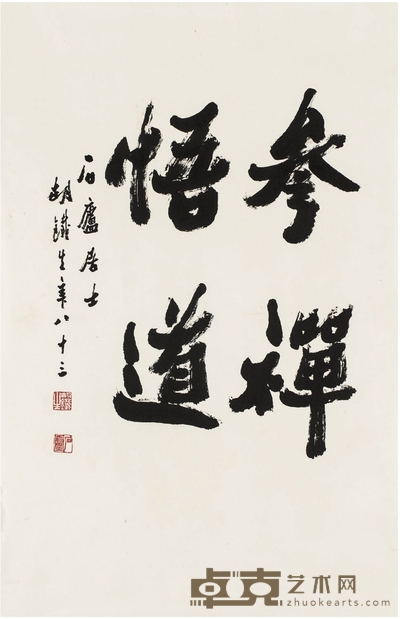 參禪
悟道
石廬居士
胡鐵生年八十三
卓克艺术网
zhuokearts.com